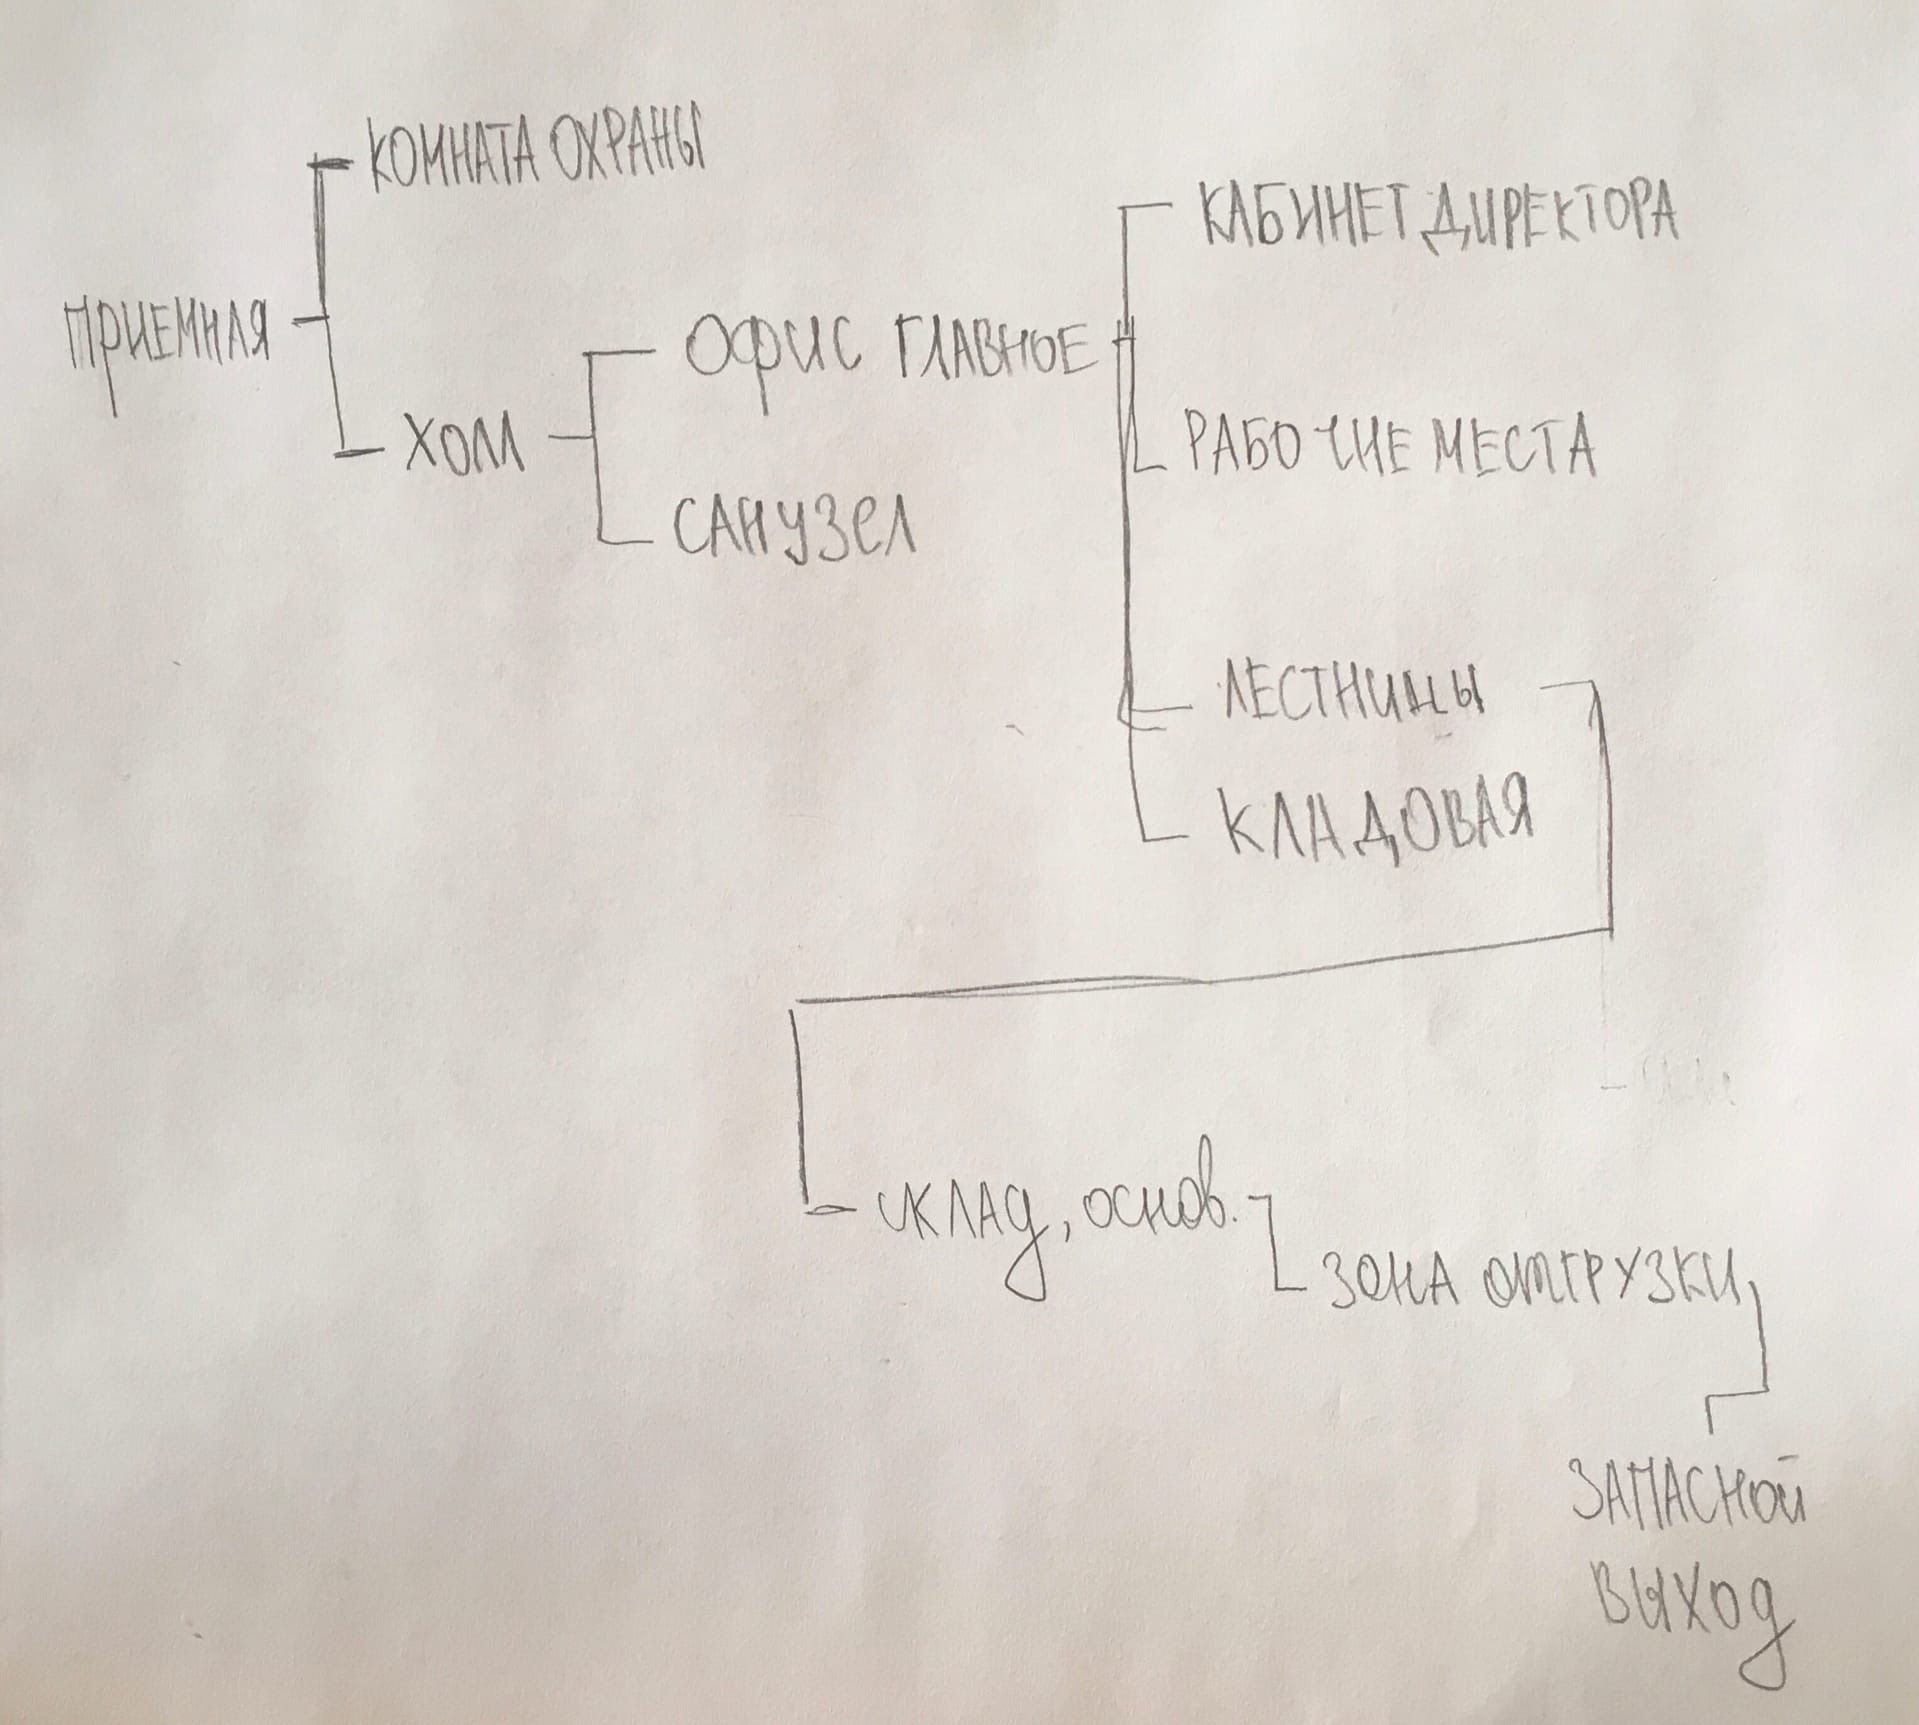 КОМНАТА ОХРАНЫ
ПРИЕМНАЯ
ХОЛЛ
ОФИС ГЛАВНОЕ
САНУЗЕЛ
КАБИНЕТ ДИРЕКТОРА
РАБОЧИЕ МЕСТА
ЛЕСТНИЦЫ
КЛАДОВАЯ
СКЛАД, ОСНОВ.
ЗОНА ОТГРУЗКИ
ЗАПАСНОЙ
ВЫХОД